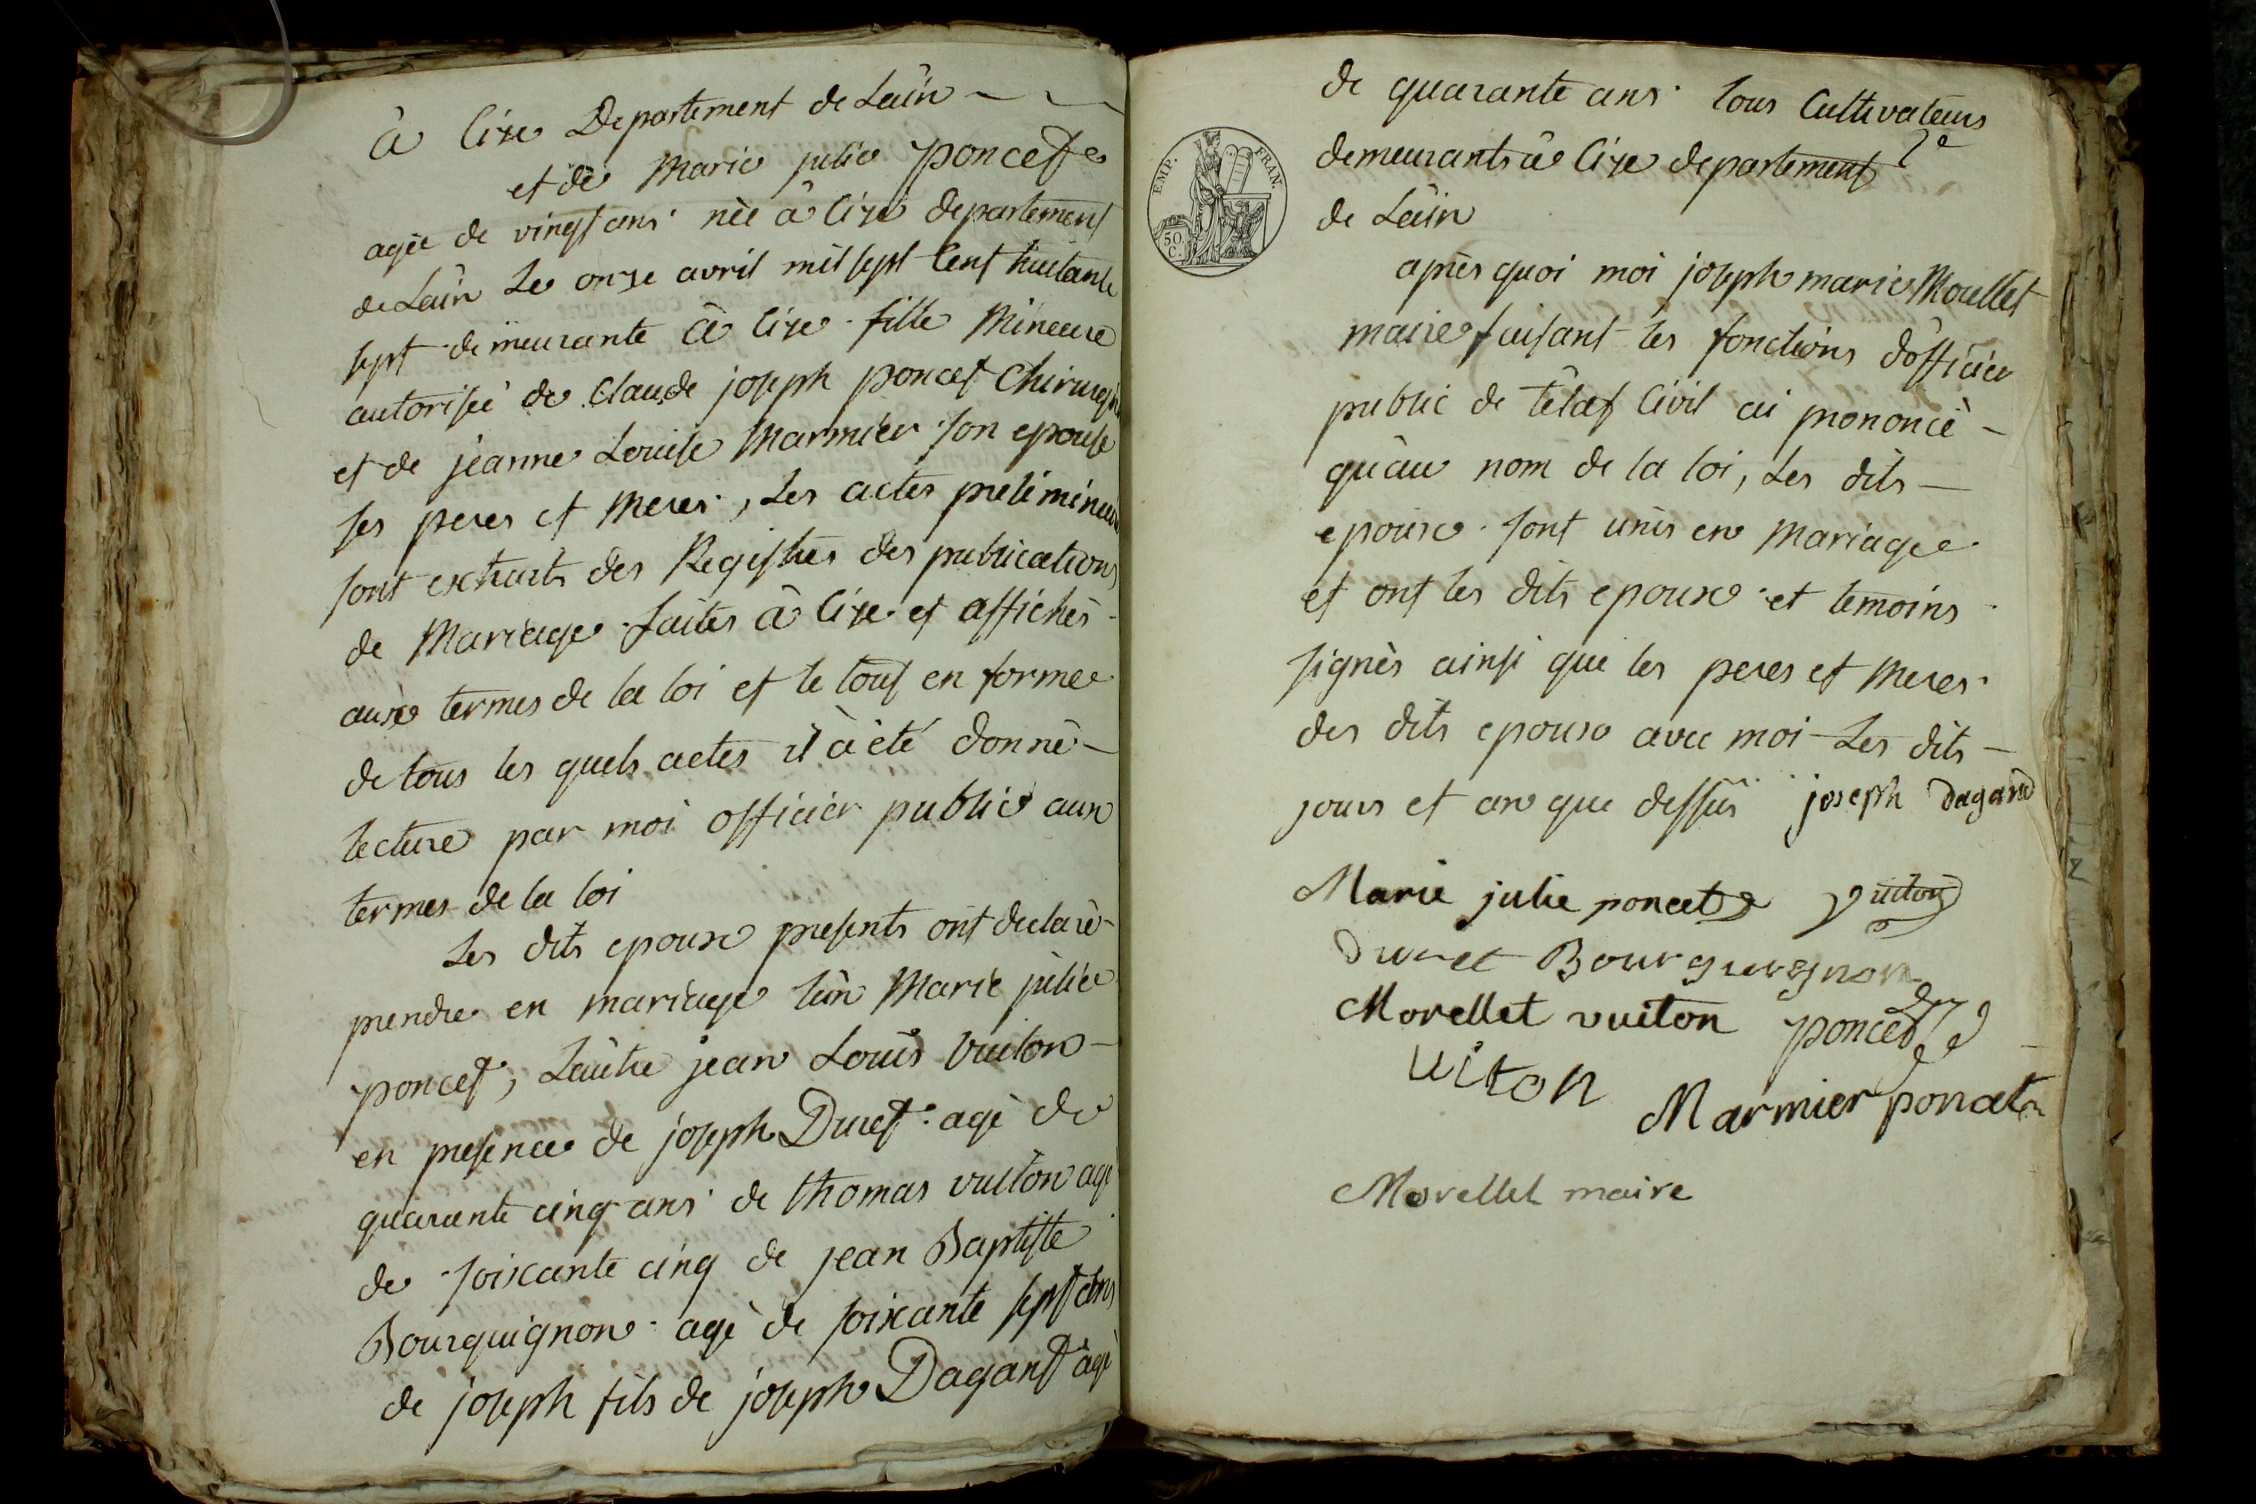 à Cize Departement de Laîn
et de Marie julie poncet
agée de vingt ans née à Cize departement
de Laîn Le onze avril mil sept Cent huitante
sept demeurante à Cize fille Mineure
autorisée de Claude joseph poncet Chirurgien
et de jeanne Louise Marmier son epouse
ses peres et Meres, Les actes preliminaires
sont extraits des Registres des publications
de Mariage faites à Cize et affichés
aux termes de la loi et le tout en forme
de tous les quels actes il à été donné
lecture par moi officier public aux
termes de la loi
Les dits epoux presents ont declaré
prendre en mariage lun Marie julie
poncet, Lautre jean Louis Vuiton
en presence de joseph Duret agé de
quarante cinq ans de thomas vuiton agé
de soixante cinq de jean Baptiste
Bourguignon agé de soixante sept ans
de joseph fils de joseph Dagant àgé
de quarante ans tous Cultivateurs
demeurants à Cize departement
de Laîn
EMP. FRAN.
50 C.
après quoi moi joseph marie Morellet
maire faisant les fonctions dofficier
public de lêtat Civil ai prononcé
quau nom de la loi, Les dits
epoux sont unis en Mariage
et ont les dits epoux et temoins
signés ainsi que les peres et Meres
des dits epoux avec moi Les dits
jours et an que dessus joseph Dagand
Marie julie poncet vuiton
Duret Bourguignon
Morellet vuiton poncet
uiton
Marmier poncet
Morellet maire